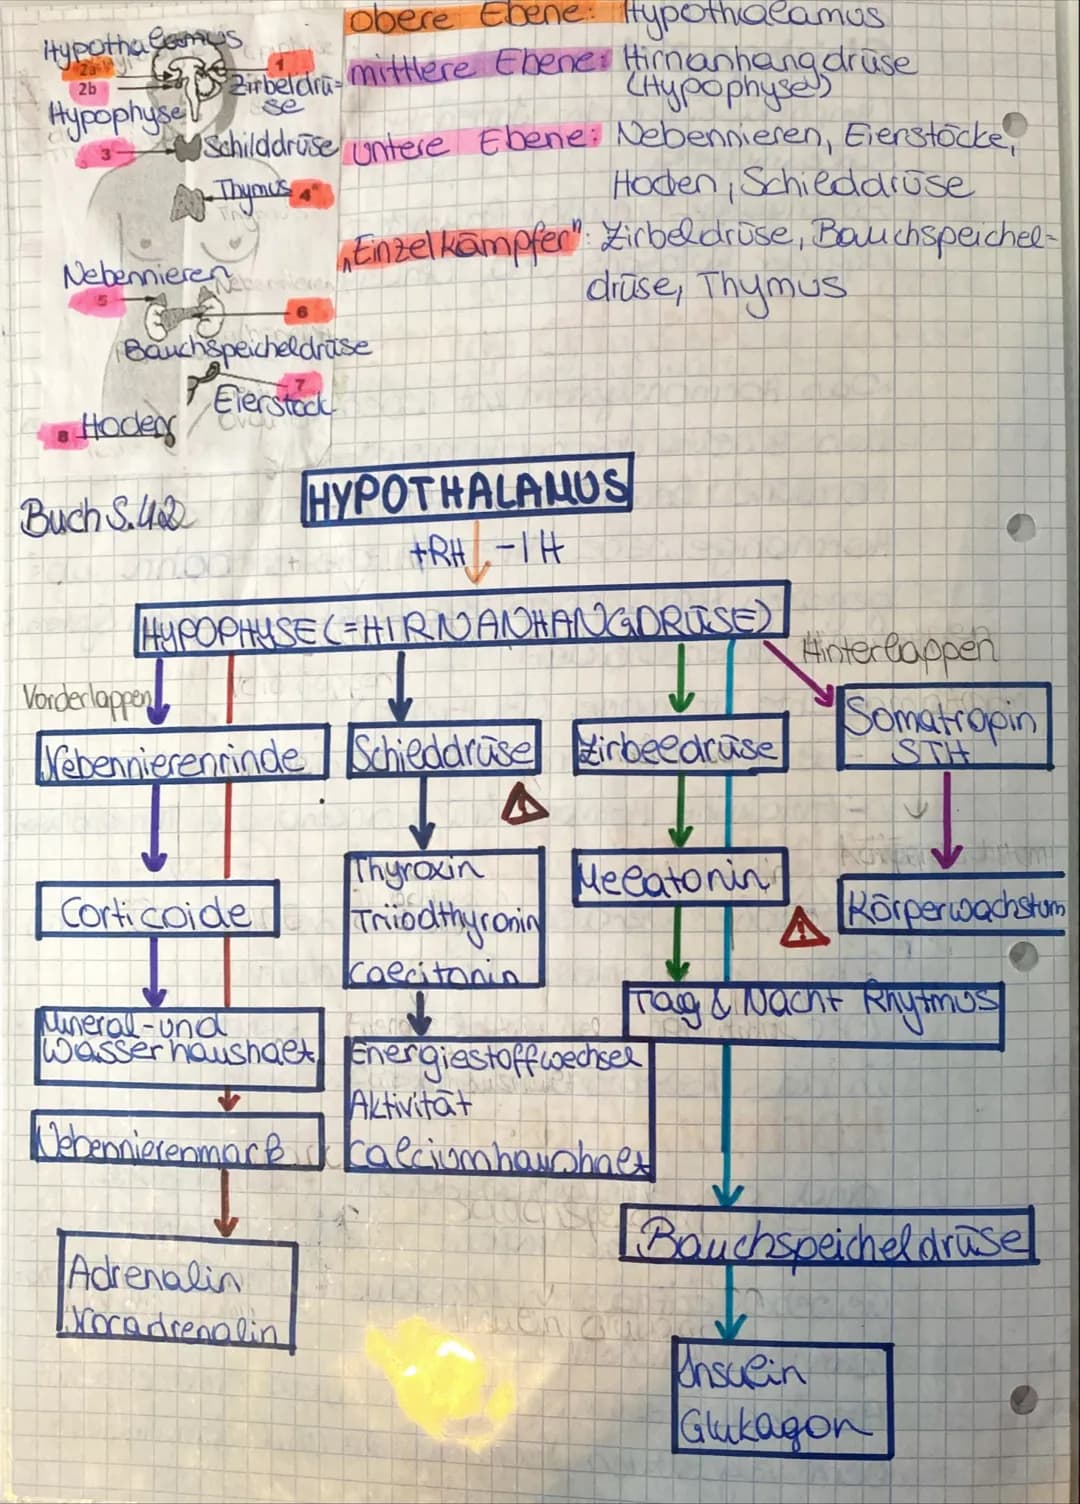 obere Ebene: Hypothalamus
mittlere Ebene: Hirnanhangdrüse
(Hypophyse)
untere Ebene: Nebennieren, Eierstöcke,
Hoden, Schilddrüse
„Einzelkämpfer": Zirbeldrüse, Bauchspeichel-
drüse, Thymus
Hypothalamus
2a
1
2b
Zirbeldrü-
se
Hypophyse
3
Schilddrüse
Thymus
4
Nebennieren
5
6
Bauchspeicheldrüse
7
Eierstock
8 Hoden
Buch S.42
HYPOTHALAMUS
+RH -IH
HYPOPHYSE (=HIRNANHANGDRÜSE)
Hinterlappen
Vorderlappen
Nebennierenrinde
Schilddrüse
Zirbeldrüse
Somatropin
STH
Corticoide
Thyroxin
Triiodthyronin
Calcitonin
Melatonin
Körperwachstum
Mineral-und
Wasserhaushalt
Energiestoffwechsel
Aktivität
Calciumhaushalt
Tag & Nacht Rhytmus
Nebennierenmark
Bauchspeicheldrüse
Adrenalin
Noradrenalin
Insulin
Glukagon